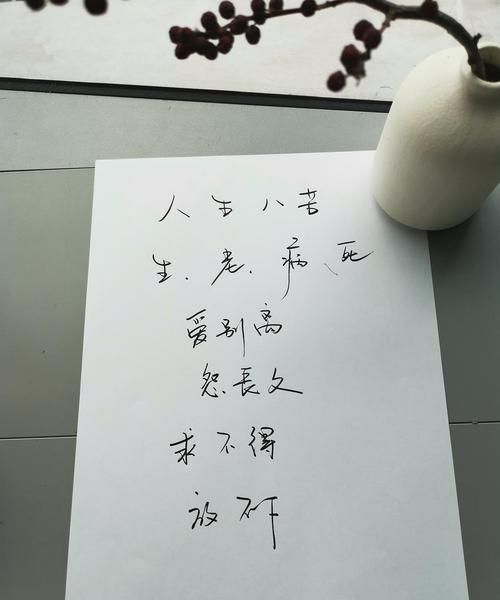 人生八苦
生、老、病、死
爱别离
怨長久
求不得
放不下